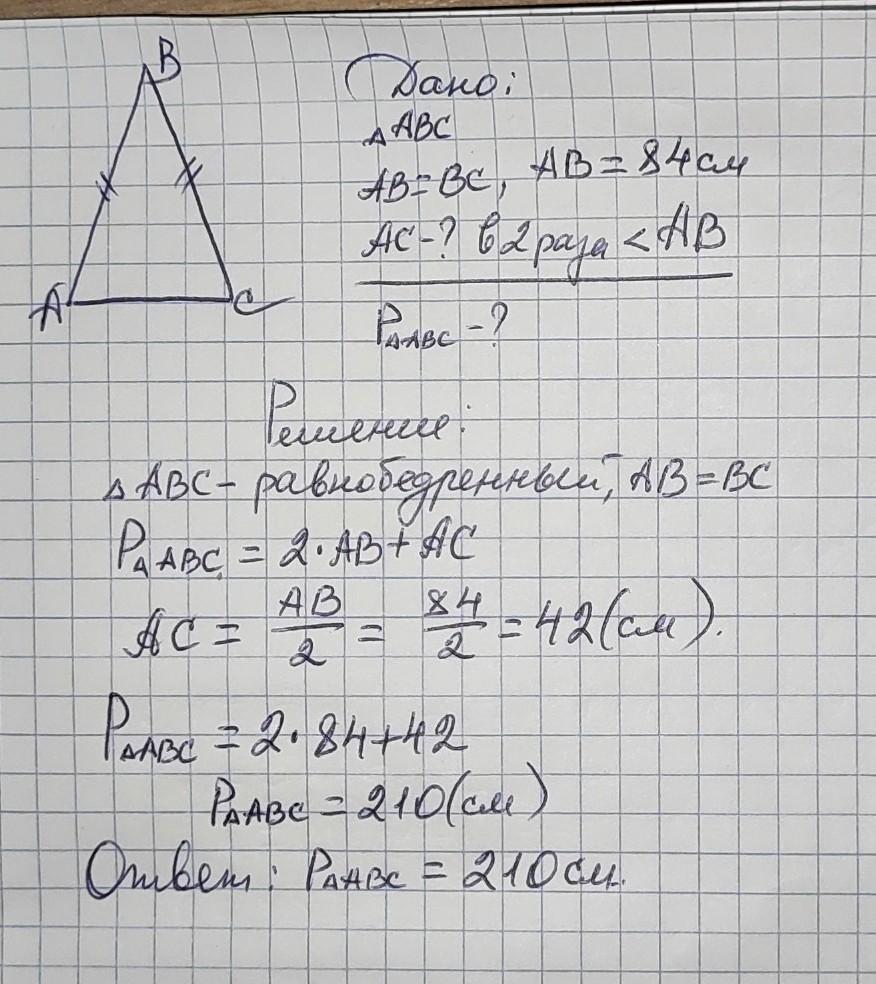 B
A
C
Дано:
△ABC
AB=BC, AB=84см
AC-? в 2 раза < AB
P△ABC -?
Решение:
△ABC - равнобедренный, AB=BC
P△ABC = 2·AB+AC
AC = AB/2 = 84/2 = 42(см).
P△ABC = 2·84+42
P△ABC = 210(см)
Ответ: P△ABC = 210см.